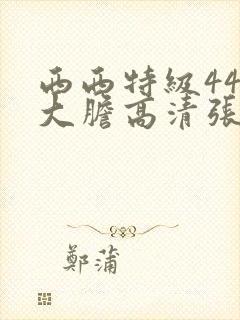 西西特級44
大膽高清張
鄭蒲